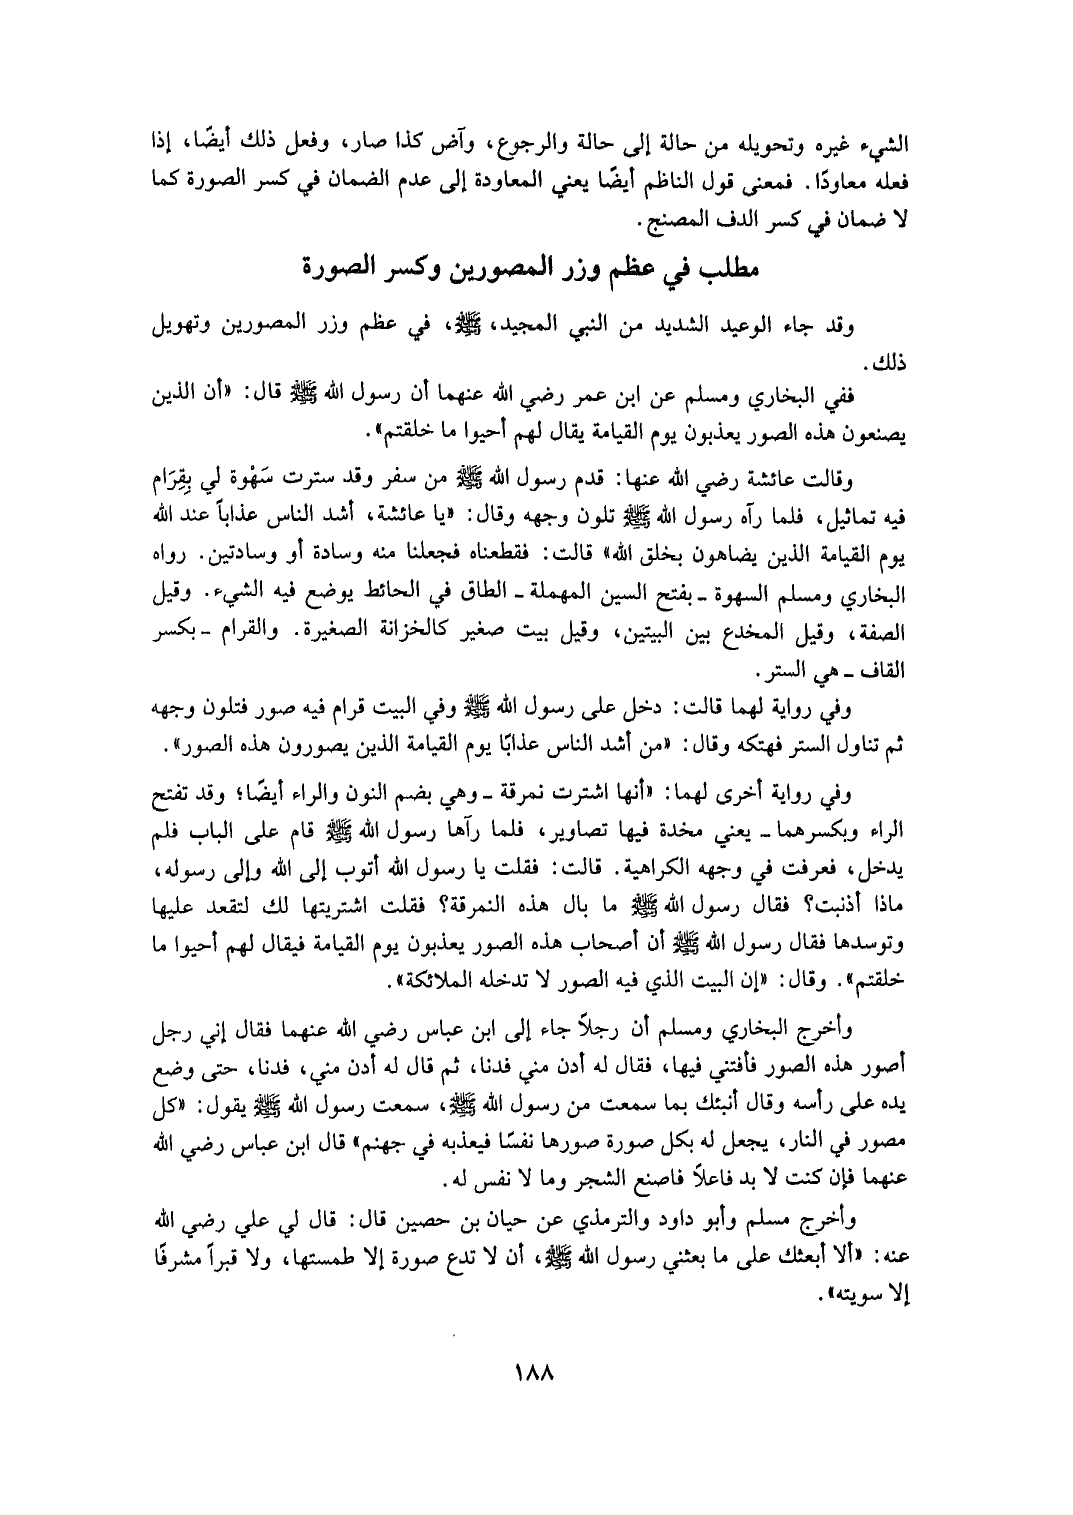 الشيء غيره وتحويله من حالة إلى حالة والرجوع، وآض كذا صار، وفعل ذلك أيضًا، إذا
فعله معاودًا. فمعنى قول الناظم أيضًا يعني المعاودة إلى عدم الضمان في كسر الصورة كما
لا ضمان في كسر الدف المصنج.
مطلب في عظم وزر المصورين وكسر الصورة
وقد جاء الوعيد الشديد من النبي المجيد، ﷺ، في عظم وزر المصورين وتهويل
ذلك.
ففي البخاري ومسلم عن ابن عمر رضي الله عنهما أن رسول الله ﷺ قال: «أن الذين
يصنعون هذه الصور يعذبون يوم القيامة يقال لهم أحيوا ما خلقتم».
وقالت عائشة رضي الله عنها: قدم رسول الله ﷺ من سفر وقد سترت سَهْوة لي بِقِرَام
فيه تماثيل، فلما رآه رسول الله ﷺ تلون وجهه وقال: «يا عائشة، أشد الناس عذاباً عند الله
يوم القيامة الذين يضاهون بخلق الله» قالت: فقطعناه فجعلنا منه وسادة أو وسادتين. رواه
البخاري ومسلم السهوة ـ بفتح السين المهملة ـ الطاق في الحائط يوضع فيه الشيء. وقيل
الصفة، وقيل المخدع بين البيتين، وقيل بيت صغير كالخزانة الصغيرة. والقرام ـ بكسر
القاف ـ هي الستر.
وفي رواية لهما قالت: دخل على رسول الله ﷺ وفي البيت قرام فيه صور فتلون وجهه
ثم تناول الستر فهتكه وقال: «من أشد الناس عذابًا يوم القيامة الذين يصورون هذه الصور».
وفي رواية أخرى لهما: «أنها اشترت نمرقة ـ وهي بضم النون والراء أيضًا؛ وقد تفتح
الراء وبكسرهما ـ يعني مخدة فيها تصاوير، فلما رآها رسول الله ﷺ قام على الباب فلم
يدخل، فعرفت في وجهه الكراهية. قالت: فقلت يا رسول الله أتوب إلى الله وإلى رسوله،
ماذا أذنبت؟ فقال رسول الله ﷺ ما بال هذه النمرقة؟ فقلت اشتريتها لك لتقعد عليها
وتوسدها فقال رسول الله ﷺ أن أصحاب هذه الصور يعذبون يوم القيامة فيقال لهم أحيوا ما
خلقتم». وقال: «إن البيت الذي فيه الصور لا تدخله الملائكة».
وأخرج البخاري ومسلم أن رجلاً جاء إلى ابن عباس رضي الله عنهما فقال إني رجل
أصور هذه الصور فأفتني فيها، فقال له أدن مني فدنا، ثم قال له أدن مني، فدنا، حتى وضع
يده على رأسه وقال أنبئك بما سمعت من رسول الله ﷺ، سمعت رسول الله ﷺ يقول: «كل
مصور في النار، يجعل له بكل صورة صورها نفسًا فيعذبه في جهنم» قال ابن عباس رضي الله
عنهما فإن كنت لا بد فاعلاً فاصنع الشجر وما لا نفس له.
وأخرج مسلم وأبو داود والترمذي عن حيان بن حصين قال: قال لي علي رضي الله
عنه: «ألا أبعثك على ما بعثني رسول الله ﷺ، أن لا تدع صورة إلا طمستها، ولا قبراً مشرفًا
إلا سويته».
١٨٨